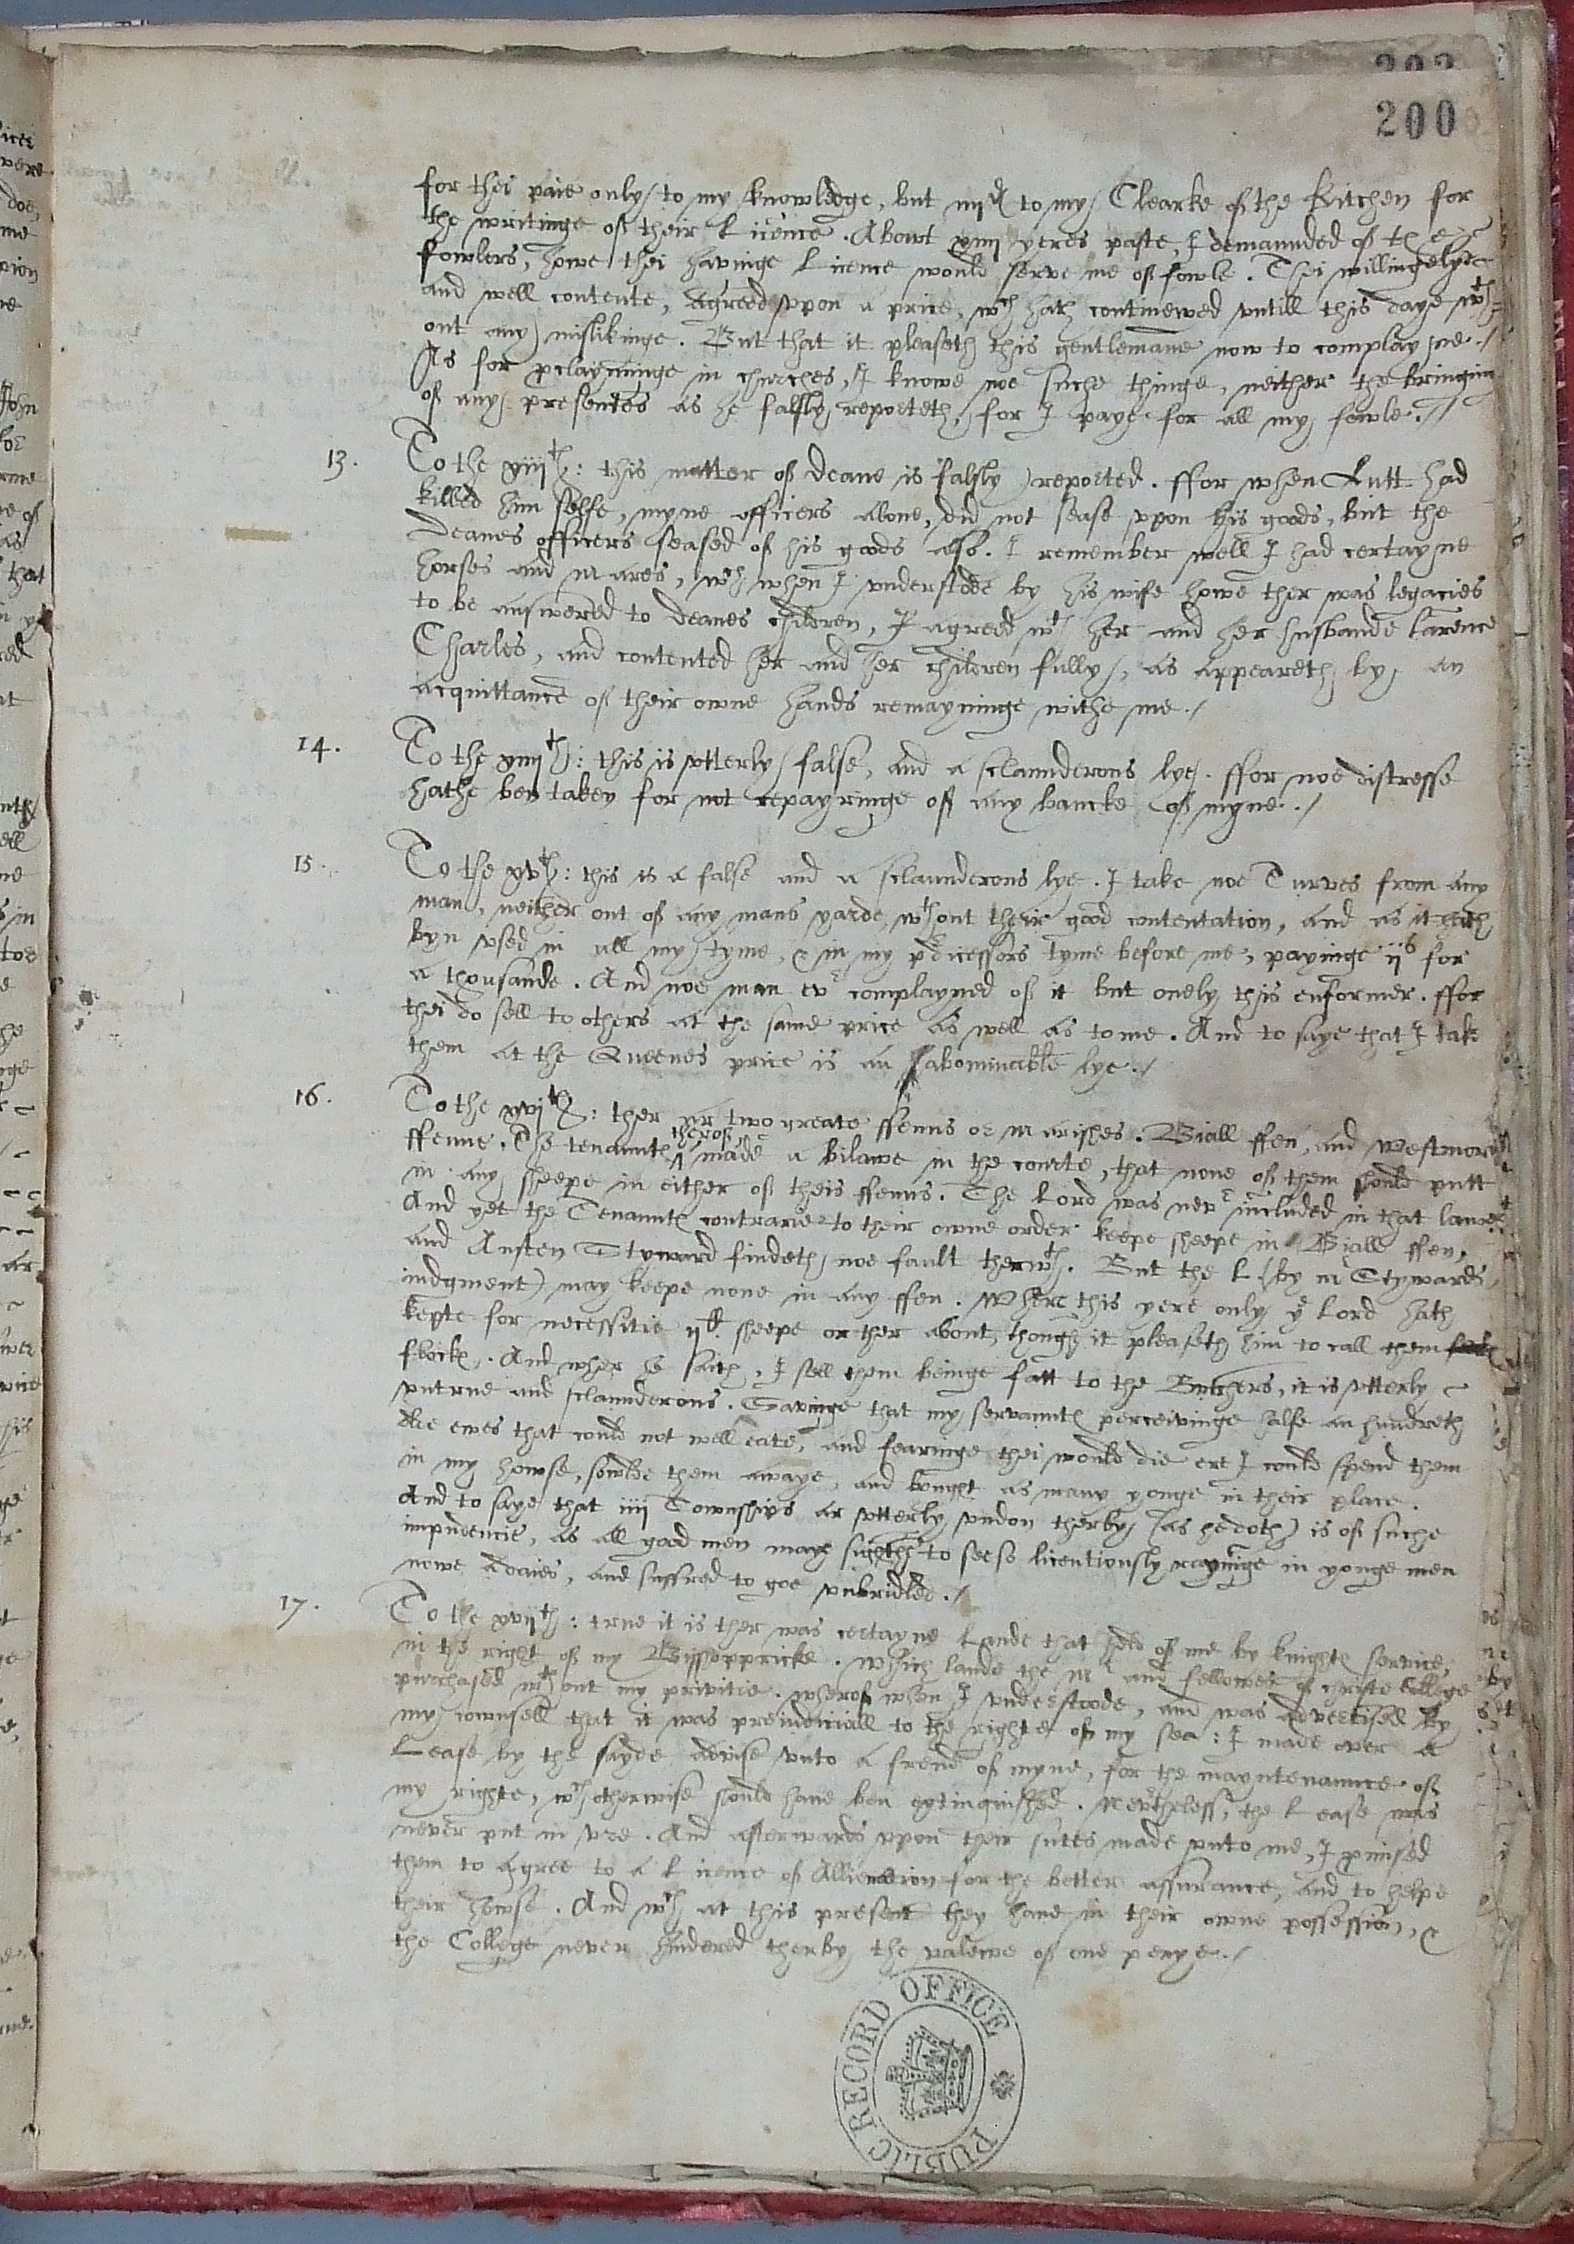 202
200
for thei paie only to my knowledge, but iiijd to my Clearke of the Kitchen for
the writinge of their Licence. Abowt xiiij yeres paste, I demaunded of
fowlers, howe thei havinge Licence would serve me of fowle. Thei willingelye
and well contente, agreed vpon a price, wch hath continewed vntill this daye wth=
out any mislikinge. But that it pleaseth this gentlemane now to complayne./
As for pclayminge in churches, I knowe noe suche thinge, neither the bringing
of any presentes as he falsly reporteth, for I paye for all my fowle.//
13. To the xiijth: this matter of Deane is falsly reported. ffor when Lutt had
killed him selfe, myne officers alone, did not sease vpon his goods, but the
Deanes officers seased of his gods also. I remember well I had certayne
horses and mares, wch when I vnderstode by his wife howe ther was legacies
to be answered to Deanes children, I agreed wth her and her husbande Larence
Charles, and contented her and her children fully, as appeareth by an
acquittance of their owne hands remayninge withe me./
14. To the xiiijth: this is vtterly false, and a sclaunderous lye. ffor noe distresse
hathe ben taken for not repayringe of any bancke of myne./
15. To the xvth: this is a false and a sclaunderous lye. I take noe Turves from any
man, neither out of any mans yarde, wthout their good contentation, and as it hath
byn vsed in all my tyme, & in my pdicessors tyme before me, payinge ijs for
a thousande. And noe man evr complayned of it but onely this enformer. ffor
thei do sell to others at the same price as well as to me. And to saye that I take
them at the Queenes price is an abominable lye./
16. To the xvith: ther ar two greate ffenns or marishes. Biall ffen, and Westmore
ffenne. The tenaunts therof made a bilawe in the courte, that none of them should putt
in any sheepe in either of theis ffenns. The Lord was nevr included in that lawe.
And yet the Tenaunts contrarie to their owne order keepe sheepe in Biall ffen,
and Austen Styward findeth noe fault therwth. But the L (by mr Stywards
iudgment) may keepe none in any ffen. Where this yere only ye Lord hath
kepte for necessitie ijC sheepe or ther about, though it pleaseth him to call them
flocks. And wher he saith, I sell them beinge fatt to the Butchers, it is vtterly
vntrue and sclaunderous. Savinge that my servaunts perceivinge halfe an hundreth
olde ewes that could not well eate, and fearinge thei would die ere I could spend them
in my howse, sowlde them awaye, and bought as many yonge in their place.
And to saye that iiij Townships ar vtterly vndon therby (as he doth) is of suche
impudencie, as all good men may sighthe to see so licentiously raigninge in yonge men
nowe adaies, and suffred to goe vnbridled./
17. To the xvijth: true it is ther was certayne Lande that held of me by knights service,
in the right of my Bisshoppricke. Which lande the mr and fellowes of christe College
purchased wthout my privitie. Wherof when I vnderstoode, and was advertised by
my counsell that it was preiudiciall to the righte of my sea: I made over a
Lease by the sayde advise vnto a frend of myne, for the mayntenaunce of
my righte, wch otherwise should have ben extinguished. Nevrtheless, the Lease was
never put in vre. And afterwards vpon their sutes made vnto me, I pmised
them to agree to a Licence of Allienacion for the better assurance, and to helpe
their howse. And wch at this present they have in their owne possession, &
the College never hindered therby the valewe of one penye./
PUBLIC RECORD OFFICE